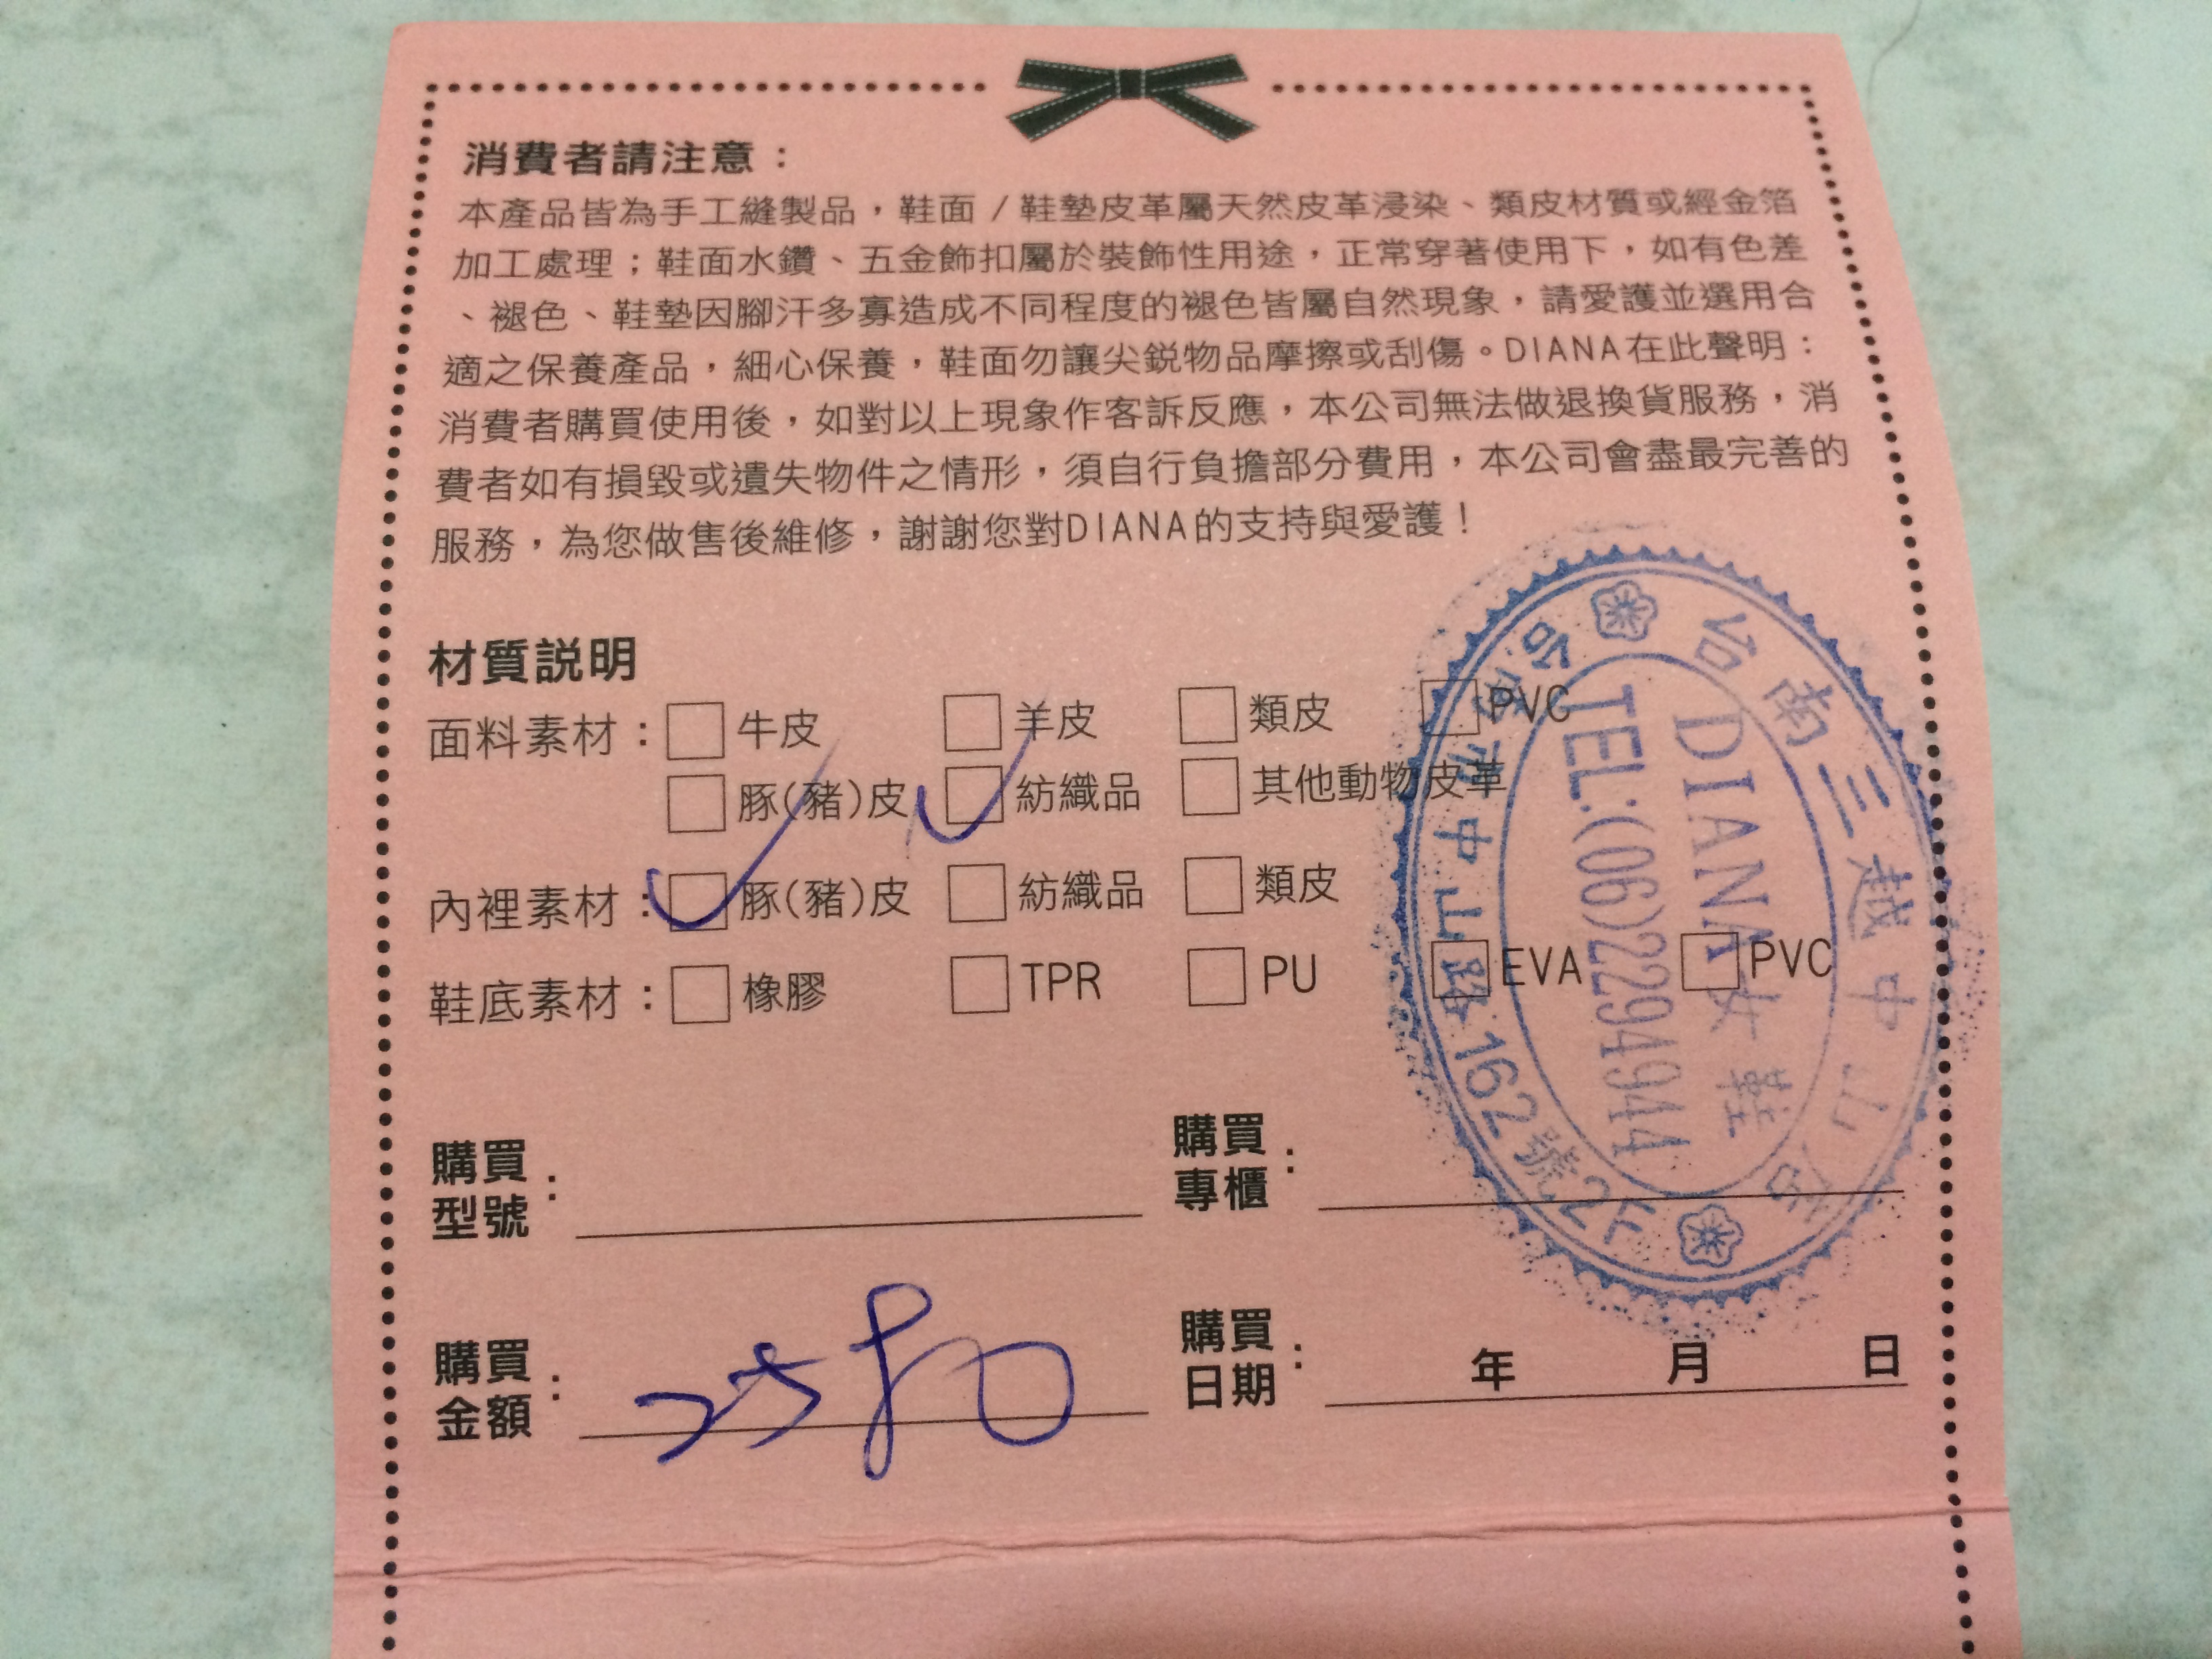 消費者請注意：
本產品皆為手工縫製品，鞋面／鞋墊皮革屬天然皮革浸染、類皮材質或經金箔
加工處理；鞋面水鑽、五金飾扣屬於裝飾性用途，正常穿著使用下，如有色差
、褪色、鞋墊因腳汗多寡造成不同程度的褪色皆屬自然現象，請愛護並選用合
適之保養產品，細心保養，鞋面勿讓尖銳物品摩擦或刮傷。DIANA在此聲明：
消費者購買使用後，如對以上現象作客訴反應，本公司無法做退換貨服務，消
費者如有損毀或遺失物件之情形，須自行負擔部分費用，本公司會盡最完善的
服務，為您做售後維修，謝謝您對DIANA的支持與愛護！
材質説明
面料素材：□牛皮 □羊皮 □類皮 □PVC
□豚(豬)皮 ☑紡織品 □其他動物皮革
內裡素材：☑豚(豬)皮 □紡織品 □類皮
鞋底素材：□橡膠 □TPR □PU □EVA □PVC
購買型號： 購買專櫃：
購買金額：2580 購買日期： 年 月 日
台南三越中山店
DIANA女鞋
TEL:(06)2294944
台南市中山路162號2F